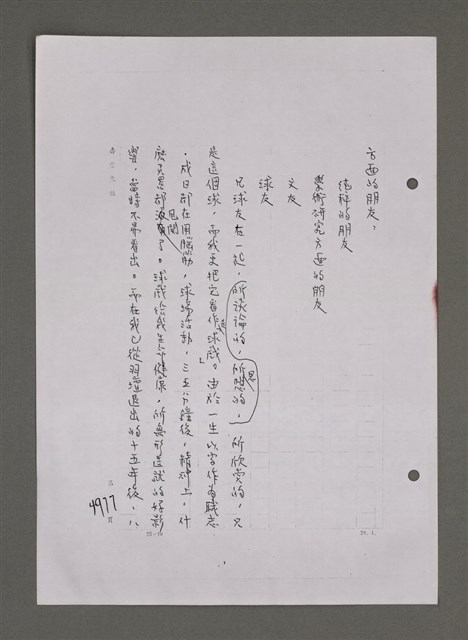 方面的朋友：
純粹的朋友
學術研究方面的朋友
文友
球友
兄球友在一起，所談論的，所想的，所欣賞的，只
是這個球，而我更把它當作球戲。由於一生以寫作為職志
，成日都在用腦筋，球場活動，三五分鐘後，精神上，什
麼煩思都沒有了。球戲給我生命健康，所無形造就的好影
響，當時不易看出。而在我已從羽壇退出的十五年後，八
思
見聞
是
第 頁
4977
25×10